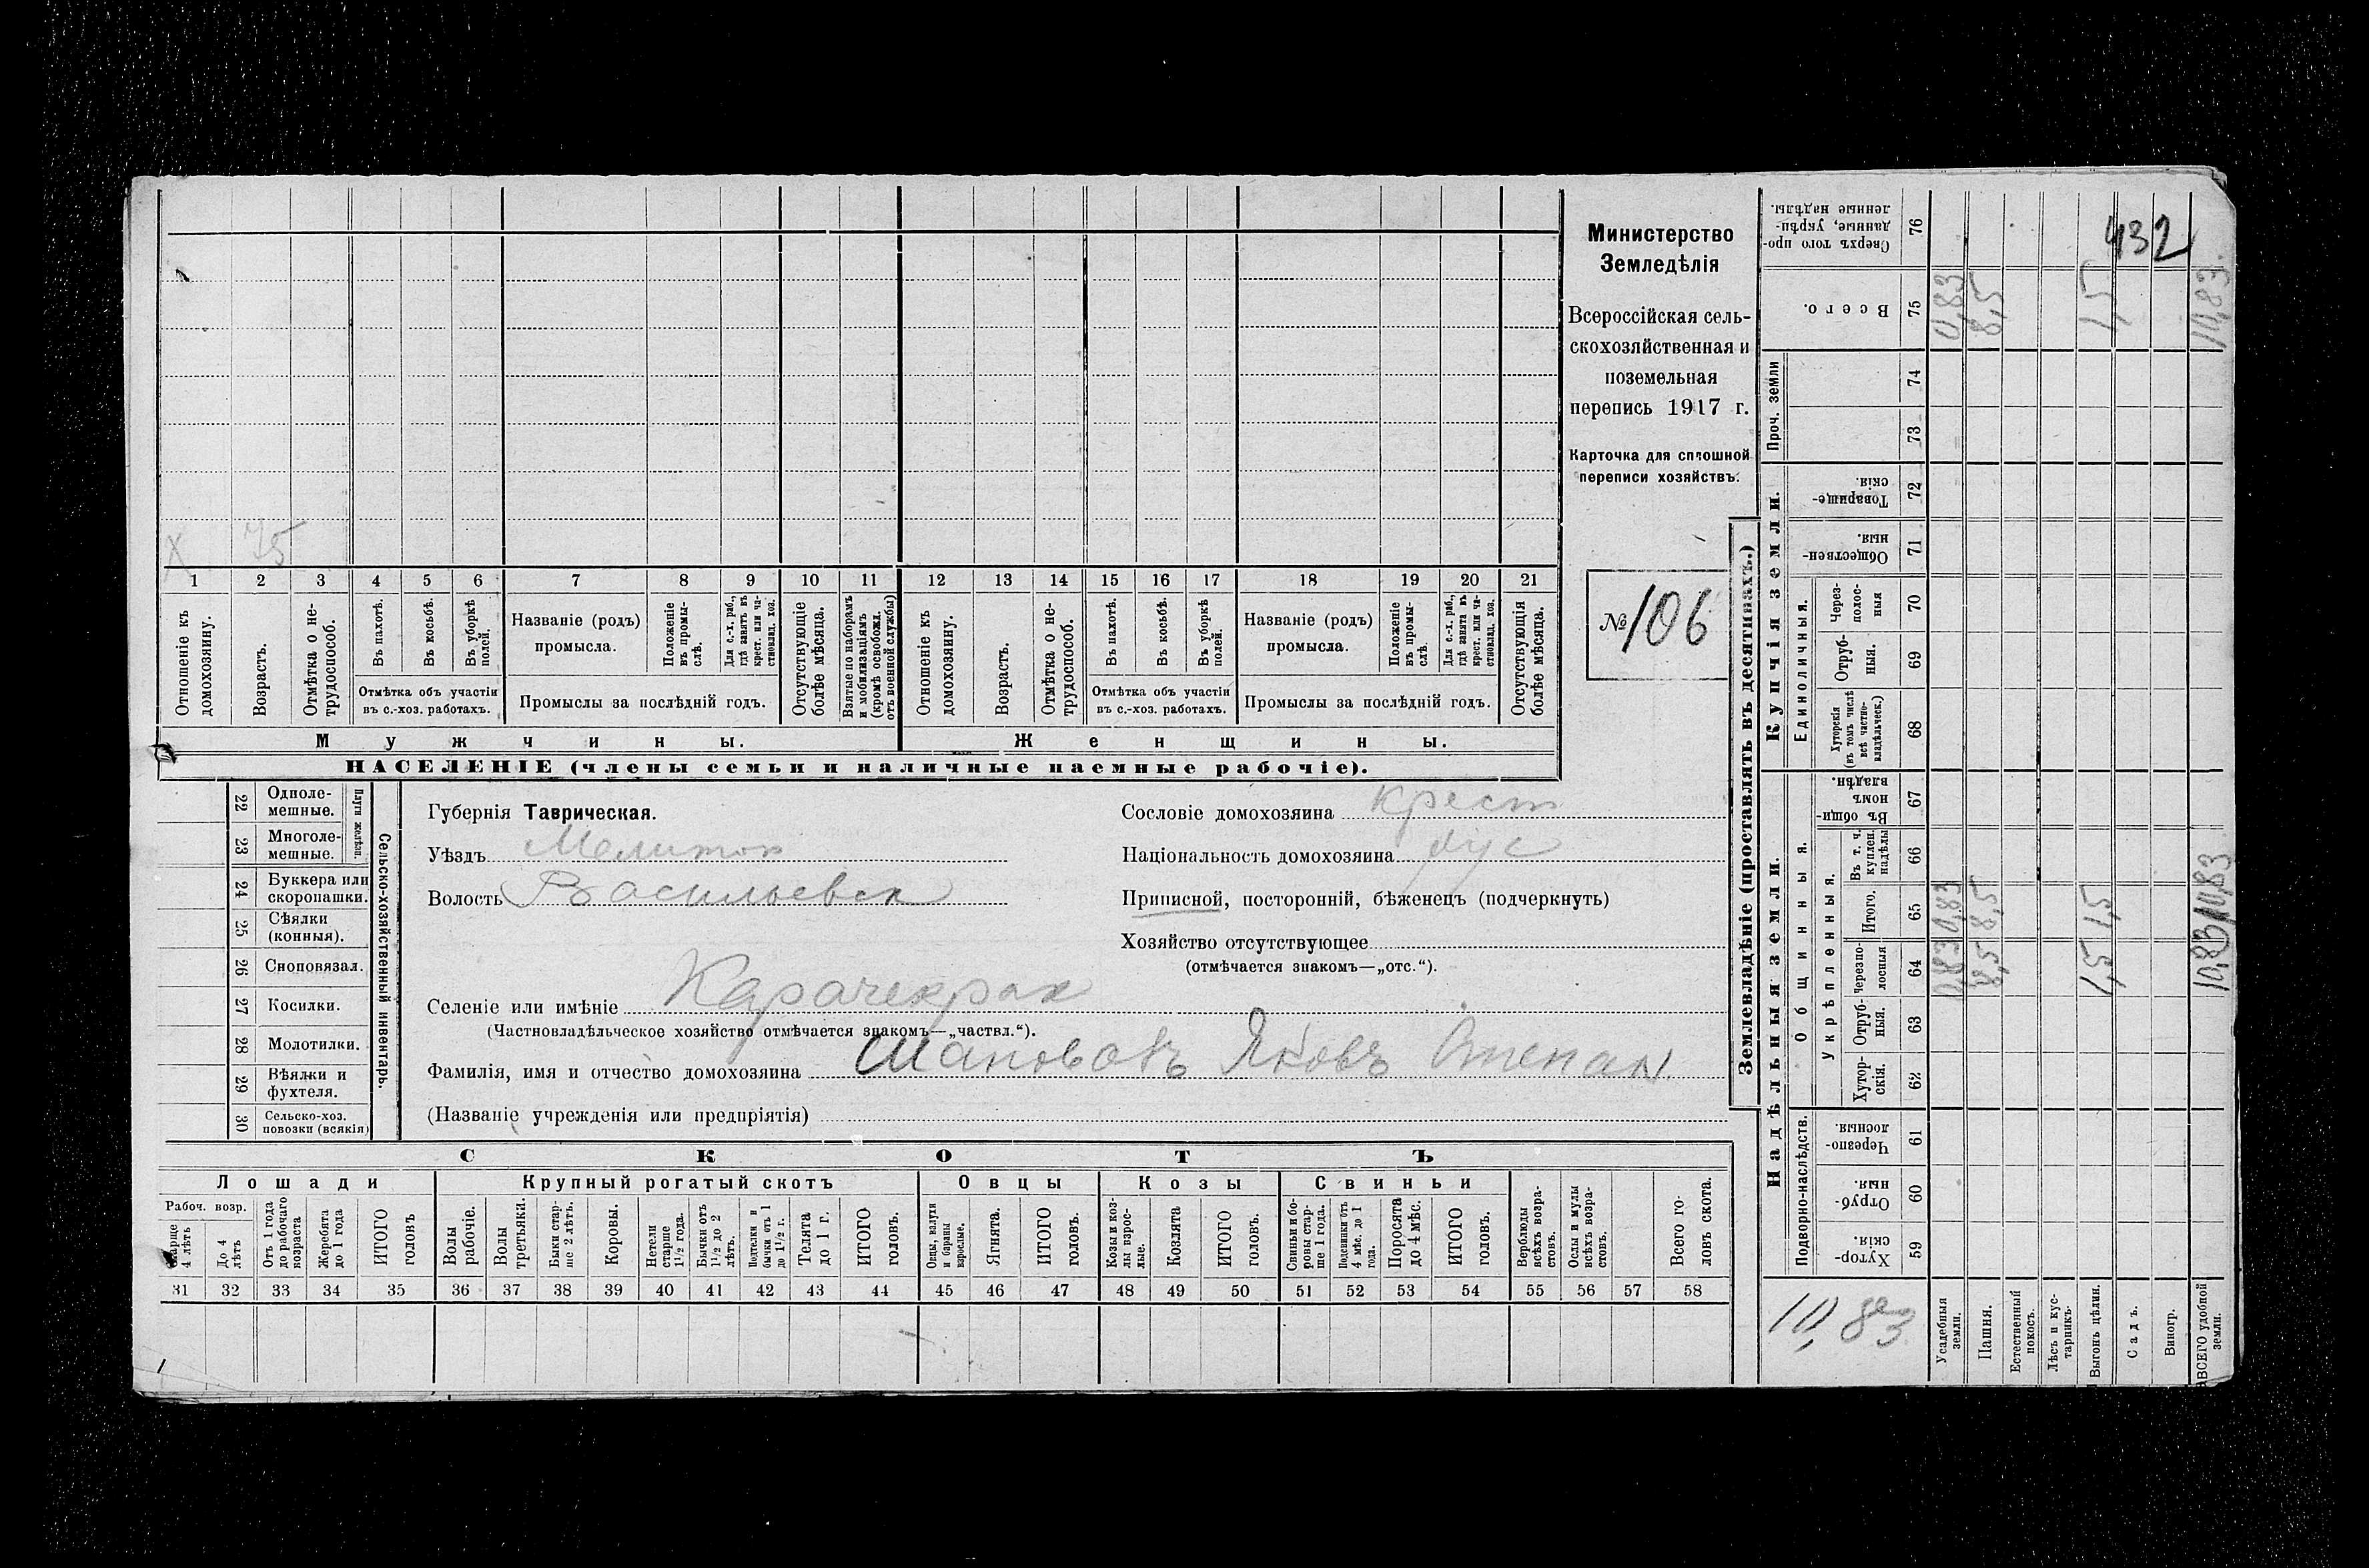 Министерство
Земледѣлія
Всероссійская сель-
скохозяйственная и
поземельная
перепись 1917 г.
Карточка для сплошной
переписи хозяйствъ.
№ 106
432
X 75
1 2 3 4 5 6 7 8 9 10 11 12 13 14 15 16 17 18 19 20 21
Отношеніе къ домохозяину.
Возрастъ.
Отмѣтка о не-трудоспособ.
Въ пахотѣ.
Въ косьбѣ.
Въ уборкѣ полей.
Отмѣтка объ участіи въ с.-хоз. работахъ.
Названіе (родъ) промысла.
Положеніе въ промы-слѣ.
Для с.-х. раб., гдѣ занятъ въ крест. или ча-стновлад. хоз.
Промыслы за послѣдній годъ.
Отсутствующіе болѣе мѣсяца.
Взятые по наборамъ и мобилизаціямъ (кромѣ освобожд. отъ военной службы)
Отношеніе къ домохозяину.
Возрастъ.
Отмѣтка о не-трудоспособ.
Въ пахотѣ.
Въ косьбѣ.
Въ уборкѣ полей.
Отмѣтка объ участіи въ с.-хоз. работахъ.
Названіе (родъ) промысла.
Положеніе въ промы-слѣ.
Для с.-х. раб., гдѣ занята въ крест. или ча-стновлад. хоз.
Промыслы за послѣдній годъ.
Отсутствующія болѣе мѣсяца.
Мужчины. Женщины.
НАСЕЛЕНІЕ (члены семьи и наличные наемные рабочіе).
22 Одноле-мешные.
23 Многоле-мешные.
Плуги желѣзн.
24 Буккера или скоропашки.
25 Сѣялки (конныя).
26 Сноповязал.
27 Косилки.
28 Молотилки.
29 Вѣялки и фухтеля.
30 Сельско-хоз. повозки (всякія)
Сельско-хозяйственный инвентарь.
Губернія Таврическая.
Уѣздъ Мелитоп
Волость Васильевск
Сословіе домохозяина крест
Національность домохозяина рус
Приписной, посторонній, бѣженецъ (подчеркнуть)
Хозяйство отсутствующее
(отмѣчается знакомъ—„отс.“).
Селеніе или имѣніе Карачекрак
(Частновладѣльческое хозяйство отмѣчается знакомъ—„частвл.“).
Фамилія, имя и отчество домохозяина Шаповавъ Яковъ Степан
(Названіе учрежденія или предпріятія)
СКОТЪ
Лошади Крупный рогатый скотъ Овцы Козы Свиньи
Рабоч. возр.
Старше 4 лѣтъ
До 4 лѣтъ
Отъ 1 года до рабочаго возраста
Жеребята до 1 года
ИТОГО головъ
Волы рабочіе.
Волы третьяки.
Быки стар-ше 2 лѣтъ.
Коровы.
Нетели старше 1½ года.
Бычки отъ 1½ до 2 лѣтъ.
Подтелки и бычки отъ 1 до 1½ г.
Телята до 1 г.
ИТОГО головъ.
Овцы, валухи и бараны взрослые.
Ягнята.
ИТОГО головъ.
Козы и коз-лы взрос-лые.
Козлята
ИТОГО головъ.
Свиньи и бо-ровы стар-ше 1 года.
Подсвинки отъ 4 мѣс. до 1 года.
Поросята до 4 мѣс.
ИТОГО головъ.
Верблюды всѣхъ возра-стовъ.
Ослы и мулы всѣхъ возра-стовъ.
Всего го-ловъ скота.
31 32 33 34 35 36 37 38 39 40 41 42 43 44 45 46 47 48 49 50 51 52 53 54 55 56 57 58
Землевладѣніе (проставлять въ десятинахъ.)
Купчія земли.
Надѣльныя земли.
Сверхъ того про-данные, укрѣп-ленные надѣлы. 76
Всего. 75 0,83 8,5 1,5 10,83.
Проч. земли 74
73
Товарище-скія. 72
Обществен-ныя. 71
Единоличныя.
Через-полос-ныя 70
Отруб-ныя. 69
Хуторскія (въ томъ числѣ всѣ частно-владѣльческ.) 68
Общинныя.
Въ общин-номъ владѣн. 67
Укрѣпленныя.
Въ т. ч. куплен. надѣлы 66
Итого. 65 0,83 8,5 1,5 10,83
Черезпо-лосныя 64 0,83 8,5 1,5 10,83
Отруб-ныя. 63
Хутор-скія. 62
Подворно-наслѣдств.
Черезпо-лосныя. 61
Отруб-ныя. 60
Хутор-скія. 59
10,83
Усадебныя земли.
Пашня.
Естественный покосъ.
Лѣсъ и кус-тарникъ.
Выгонъ цѣлин.
Садъ.
Виногр.
ВСЕГО удобной земли.